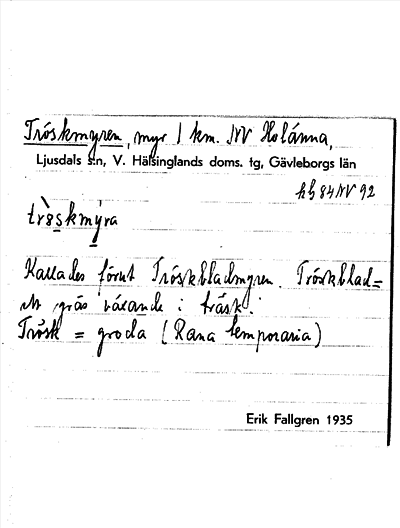 Tröskmyren, myr 1 km. NV Holänna,
Ljusdals s:n, V. Hälsinglands doms. tg, Gävleborgs län
84 NV 92
tröskmýra
Kallades förut Tröskbladmyren. Tröskblad=
ett gräs växande i träsk.
Trösk = groda (Rana temporaria)
Erik Fallgren 1935